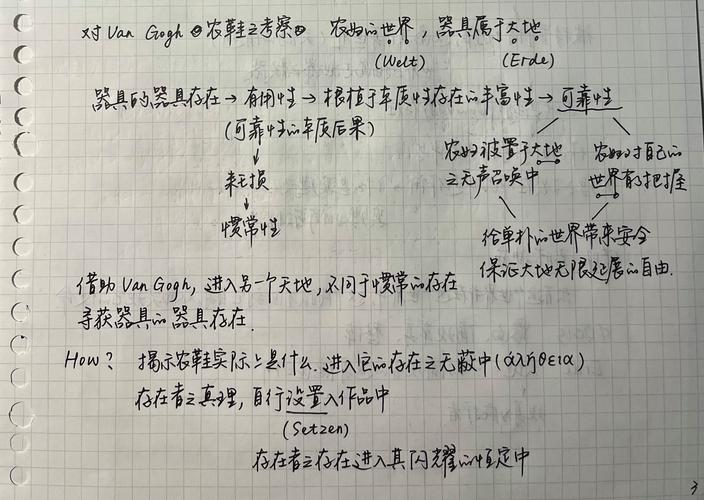 对 Van Gogh 农鞋之考察 农妇的世界，器具属于大地
(Welt) (Erde)
器具的器具存在→有用性→根植于本质性存在的丰富性→可靠性
(可靠性的本质后果)
↓
耗损
↓
惯常性
农妇被置于大地
之无声召唤中
农妇对自己的
世界有把握
给单朴的世界带来安全
保证大地无限延展的自由.
借助 Van Gogh，进入另一个天地，不同于惯常的存在
寻获器具的器具存在.
How? 揭示农鞋实际上是什么.进入它的存在之无蔽中(ἀλήθεια)
存在者之真理，自行设置入作品中
(Setzen)
存在者之存在进入其闪耀的恒定中
3